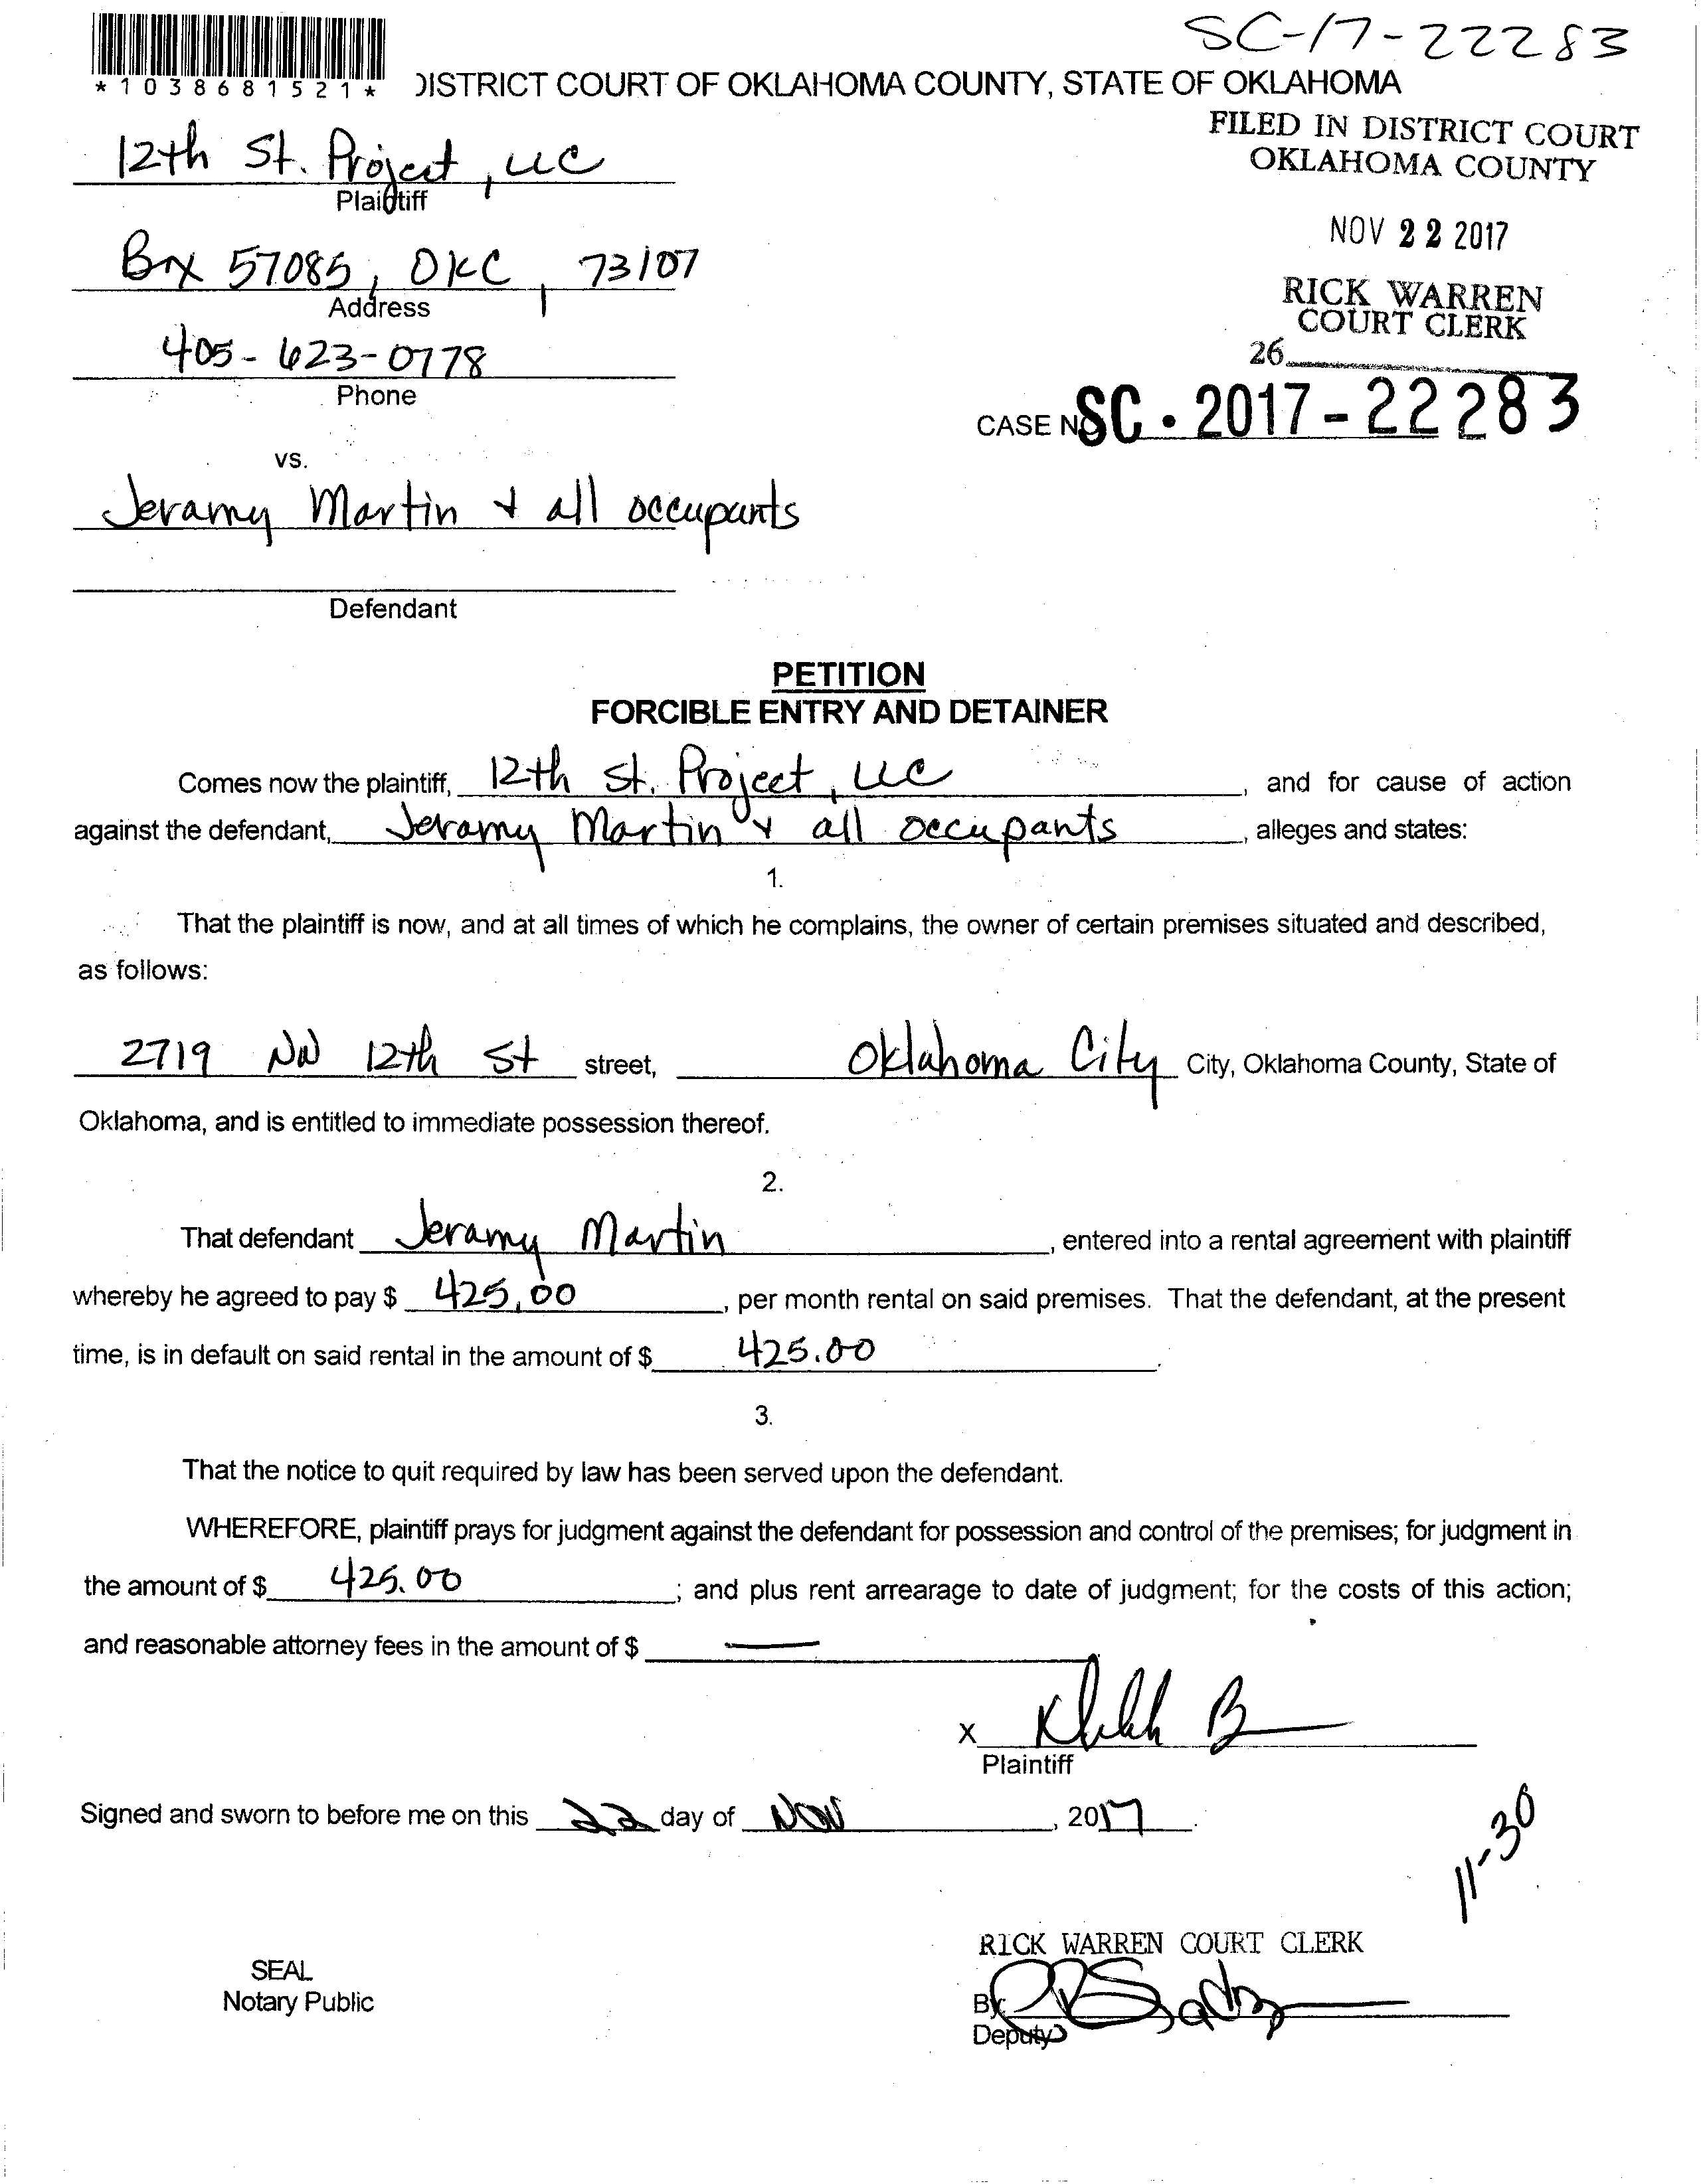 SC-17-22283
*1038681521*
DISTRICT COURT OF OKLAHOMA COUNTY, STATE OF OKLAHOMA
FILED IN DISTRICT COURT
OKLAHOMA COUNTY
12th St. Project, LLC
Plaintiff
NOV 22 2017
Box 57085, OKC, 73107
Address
RICK WARREN
COURT CLERK
405-623-0778
Phone
26
CASE NO. SC-2017-22283
vs.
Jeramy Martin & all occupants
Defendant
PETITION
FORCIBLE ENTRY AND DETAINER
Comes now the plaintiff, 12th St. Project, LLC, and for cause of action
against the defendant, Jeramy Martin & all occupants, alleges and states:
1.
That the plaintiff is now, and at all times of which he complains, the owner of certain premises situated and described,
as follows:
2719 NW 12th St street, Oklahoma City City, Oklahoma County, State of
Oklahoma, and is entitled to immediate possession thereof.
2.
That defendant Jeramy Martin, entered into a rental agreement with plaintiff
whereby he agreed to pay $ 425.00, per month rental on said premises. That the defendant, at the present
time, is in default on said rental in the amount of $ 425.00.
3.
That the notice to quit required by law has been served upon the defendant.
WHEREFORE, plaintiff prays for judgment against the defendant for possession and control of the premises; for judgment in
the amount of $ 425.00; and plus rent arrearage to date of judgment; for the costs of this action;
and reasonable attorney fees in the amount of $ —
X
Plaintiff
Signed and sworn to before me on this 22 day of NOV, 2017.
11-30
RICK WARREN COURT CLERK
SEAL
Notary Public
By:
Deputy